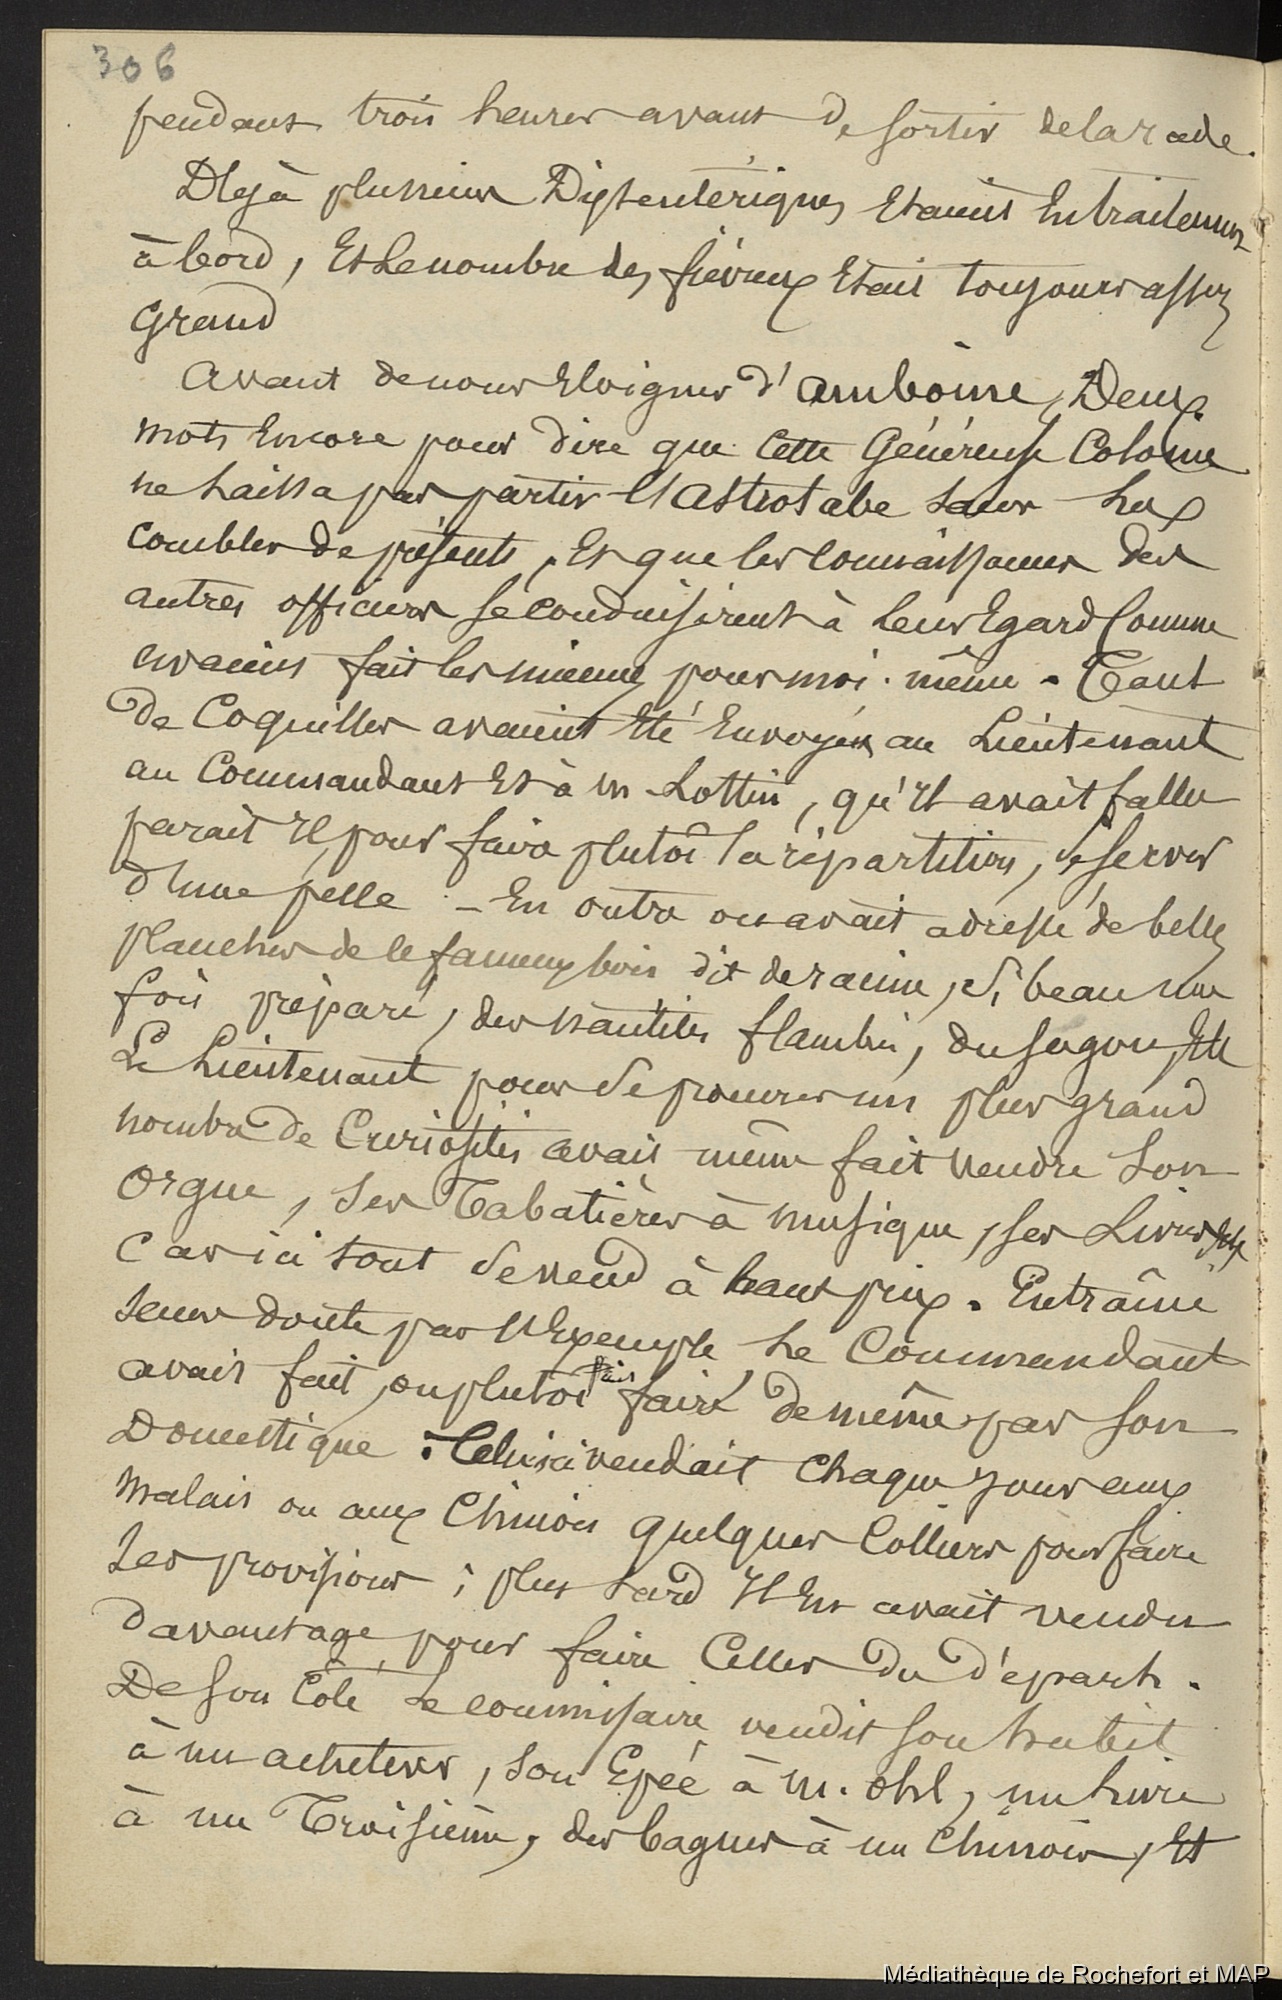 306
pendant trois heures avant de sortir de la rade.
Déjà plusieurs Dissentériques Etaient En traitement
à bord, Et le nombre des fiévreux Etait toujours assez
grand
Avant de nous Eloigner d'amboine, Deux
mots Encore pour dire que cette Généreuse Colonie
ne laissa pas partir l'Astrolabe sans les
combler de présents, Et que les connaissances des
autres officiers se conduisirent à leur Egard Comme
avaient fait les miennes pour moi-même. Tant
de Coquilles avaient Eté Envoyées au Lieutenant
au Commandant Et à m Lottin, qu'il avait fallu
parait Il, pour faire plutôt la répartition, se servir
d'une pelle – En outre on avait adressé de belles
planches de ce fameux bois dit de racine, si beau une
fois préparé, des nautiles flambés, du sagou, Etc
Le Lieutenant pour se procurer un plus grand
nombre de Curiosités avait même fait vendre son
orgue, ses Tabatières à musique, ses Livres Etc
car ici tout se vend à haut prix. Entraîné
sans doute par l'Exemple, le Commandant
avait fait, ou plutôt fait faire de même par son
Domestique. Celui ci vendait chaque jour aux
malais ou aux Chinois quelques Colliers pour faire
ses provisions; plus tard Il En avait vendu
davantage pour faire Celles du départ.
De son Côté Le commissaire vendit son habit
à un acheteur, son Epée à m. Ohl, un livre
à un Troisième, des bagues à un Chinois, Et
Médiathèque de Rochefort et MAP